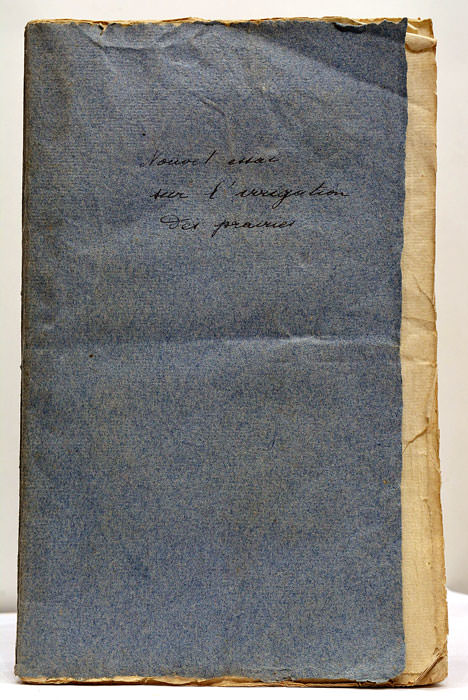 Nouvel essai
sur l'irrigation
des prairies